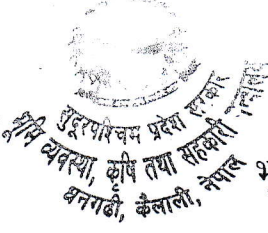 सुदूरपश्चिम प्रदेश सरकार
भूमि व्यवस्था, कृषि तथा सहकारी
धनगढी, कैलाली, नेपाल